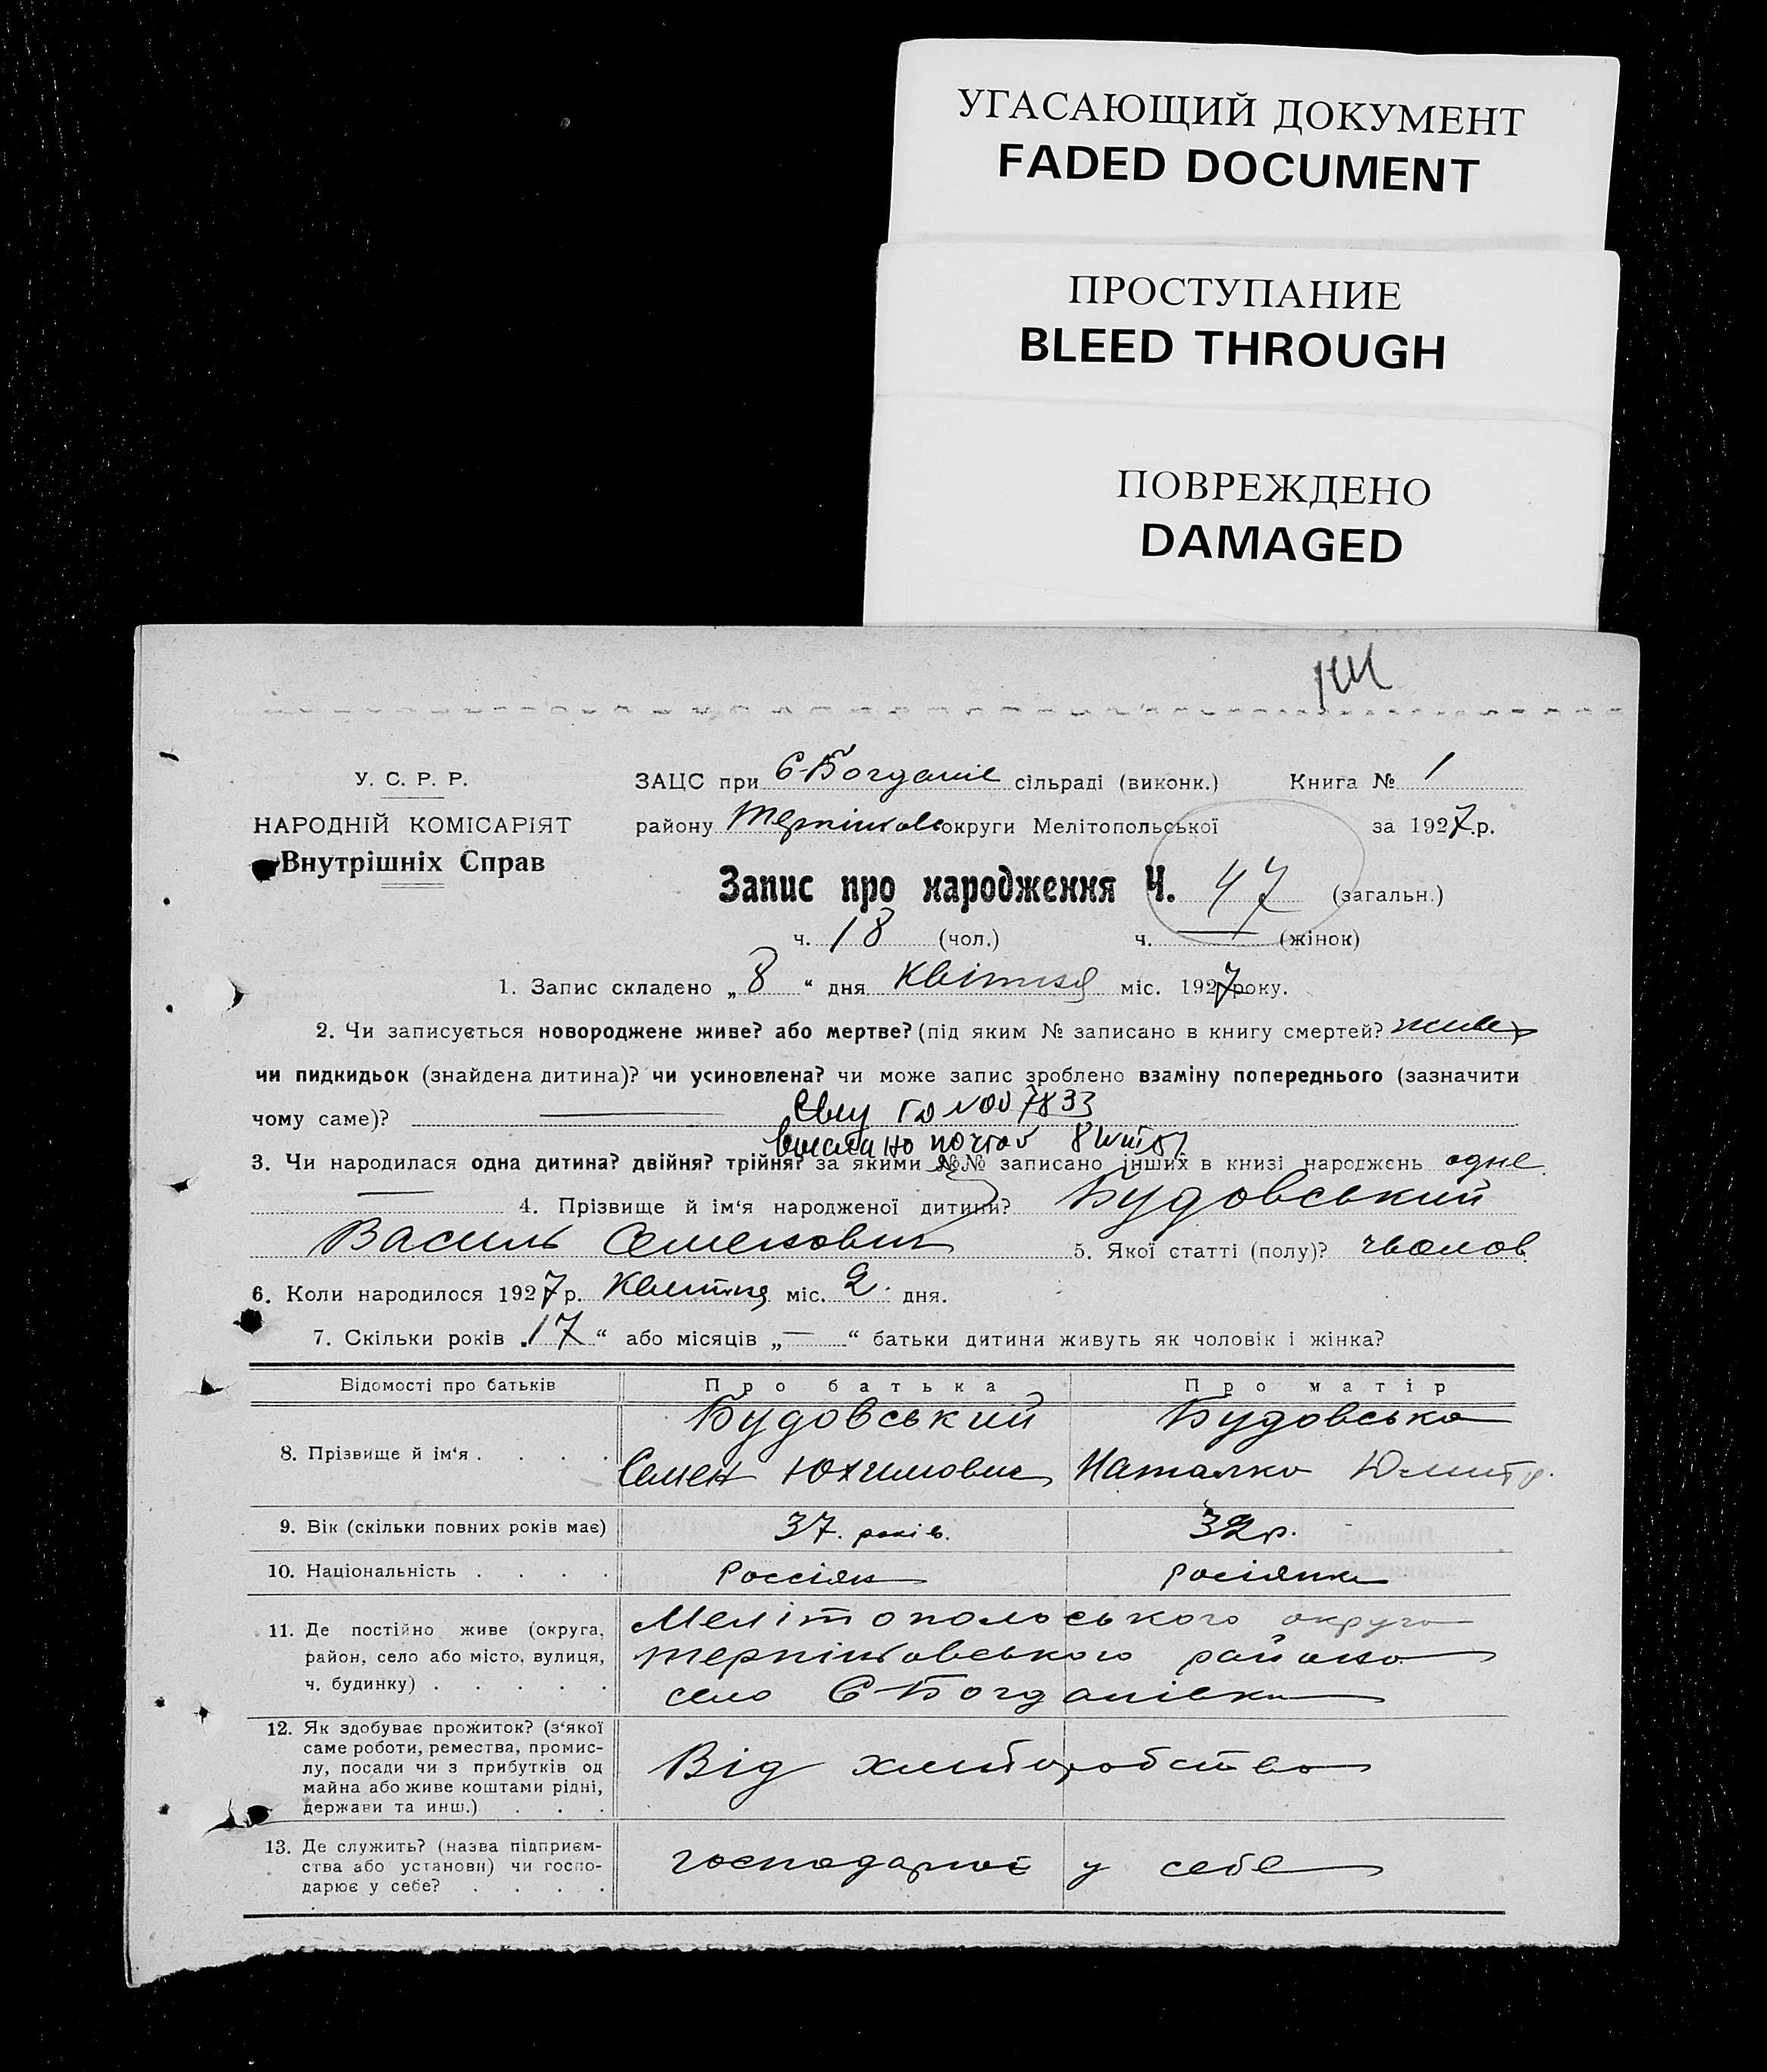 УГАСАЮЩИЙ ДОКУМЕНТ
FADED DOCUMENT
ПРОСТУПАНИЕ
BLEED THROUGH
ПОВРЕЖДЕНО
DAMAGED
У. С. Р. Р.
НАРОДНІЙ КОМІСАРІЯТ
Внутрішніх Справ
ЗАЦС при Є-Богданів сільраді (виконк.) Книга № 1
району округи Мелітопольської за 1927.р.
Запис про народження Ч. 47 (загальн.)
ч. 18 (чол.) ч. — (жінок)
1. Запис складено „ 8 “ дня Квітня міс. 1927 року.
2. Чи записується новороджене живе? або мертве? (під яким № записано в книгу смертей? живе,
чи пидкидьок (знайдена дитина)? чи усиновлена? чи може запис зроблено взаміну попереднього (зазначити
чому саме)?
3. Чи народилася одна дитина? двійня? трійня? за якими №№ записано інших в книзі народжень одне
4. Прізвище й ім‘я народженої дитини? Будовський
Василь Семенович 5. Якої статті (полу)?
6. Коли народилося 1927 р. Квитня міс. 2. дня.
7. Скільки років „17“ або місяців „—“ батьки дитини живуть як чоловік і жінка?
Відомості про батьків Про батька Про матір
8. Прізвище й ім‘я . . . . Будовський Будовська
Семен Юхимович Наталка
9. Вік (скільки повних років має) 37. років. 32 р.
10. Національність . . . . Россіян росіянка
11. Де постійно живе (округа, район, село або місто, вулиця, ч. будинку) . . . . . Мелітопольського округа
терпіньовського района
село Є-Богданівка
12. Як здобуває прожиток? (з‘якої саме роботи, ремества, промислу, посади чи з прибутків од майна або живе коштами рідні, держави та инш.) . . . Від хлиборобства
13. Де служить? (назва підприємства або установи) чи господарює у себе? . . . . господарює у себе